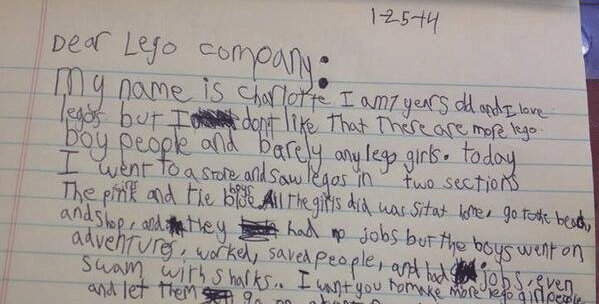 1-25-14
Dear Lego company:
My name is charlotte I am 7 years old and I love
legos but I dont like that There are more lego
boy people and barely any lego girls. today
I went to a store and saw legos in two sections
The pink and the blue boys All the girls did was sit at home, go to the beach,
and shop, and they had no jobs but the boys went on
adventures, worked, saved people, and had jobs, even
swam with sharks.. I want you to make more lego girl people
and let them go on